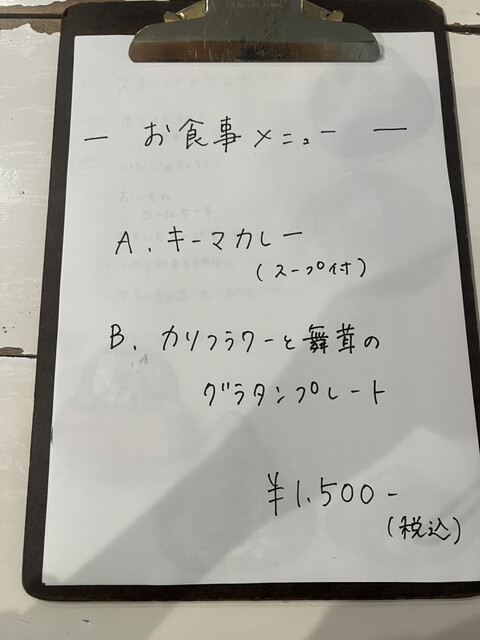 ― お食事メニュー ―
A. キーマカレー
(スープ付)
B. カリフラワーと舞茸の
グラタンプレート
¥1,500-
(税込)